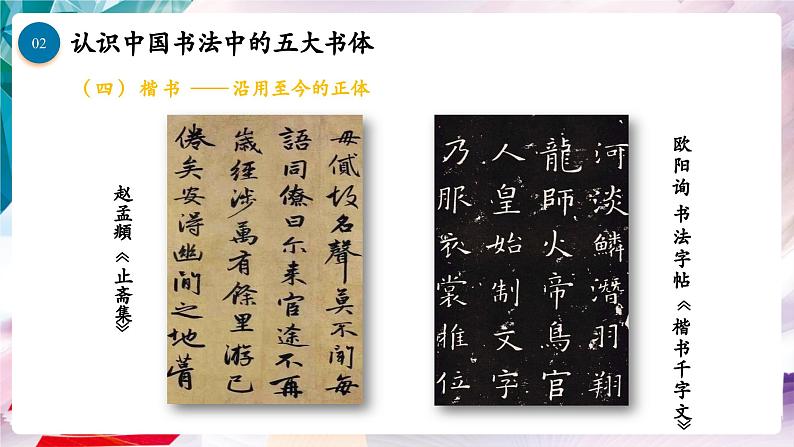 02
认识中国书法中的五大书体
（四）楷书 ——沿用至今的正体
赵孟頫《止斋集》
毋贰故名聲莫不聞每
語同僚曰尔来官途不再
歲經涉萬有餘里游已
倦矣安得幽閒之地葺
欧阳询 书法字帖《楷书千字文》
河淡鳞潛羽翔
龍師火帝鳥官
人皇始制文字
乃服衣裳推位